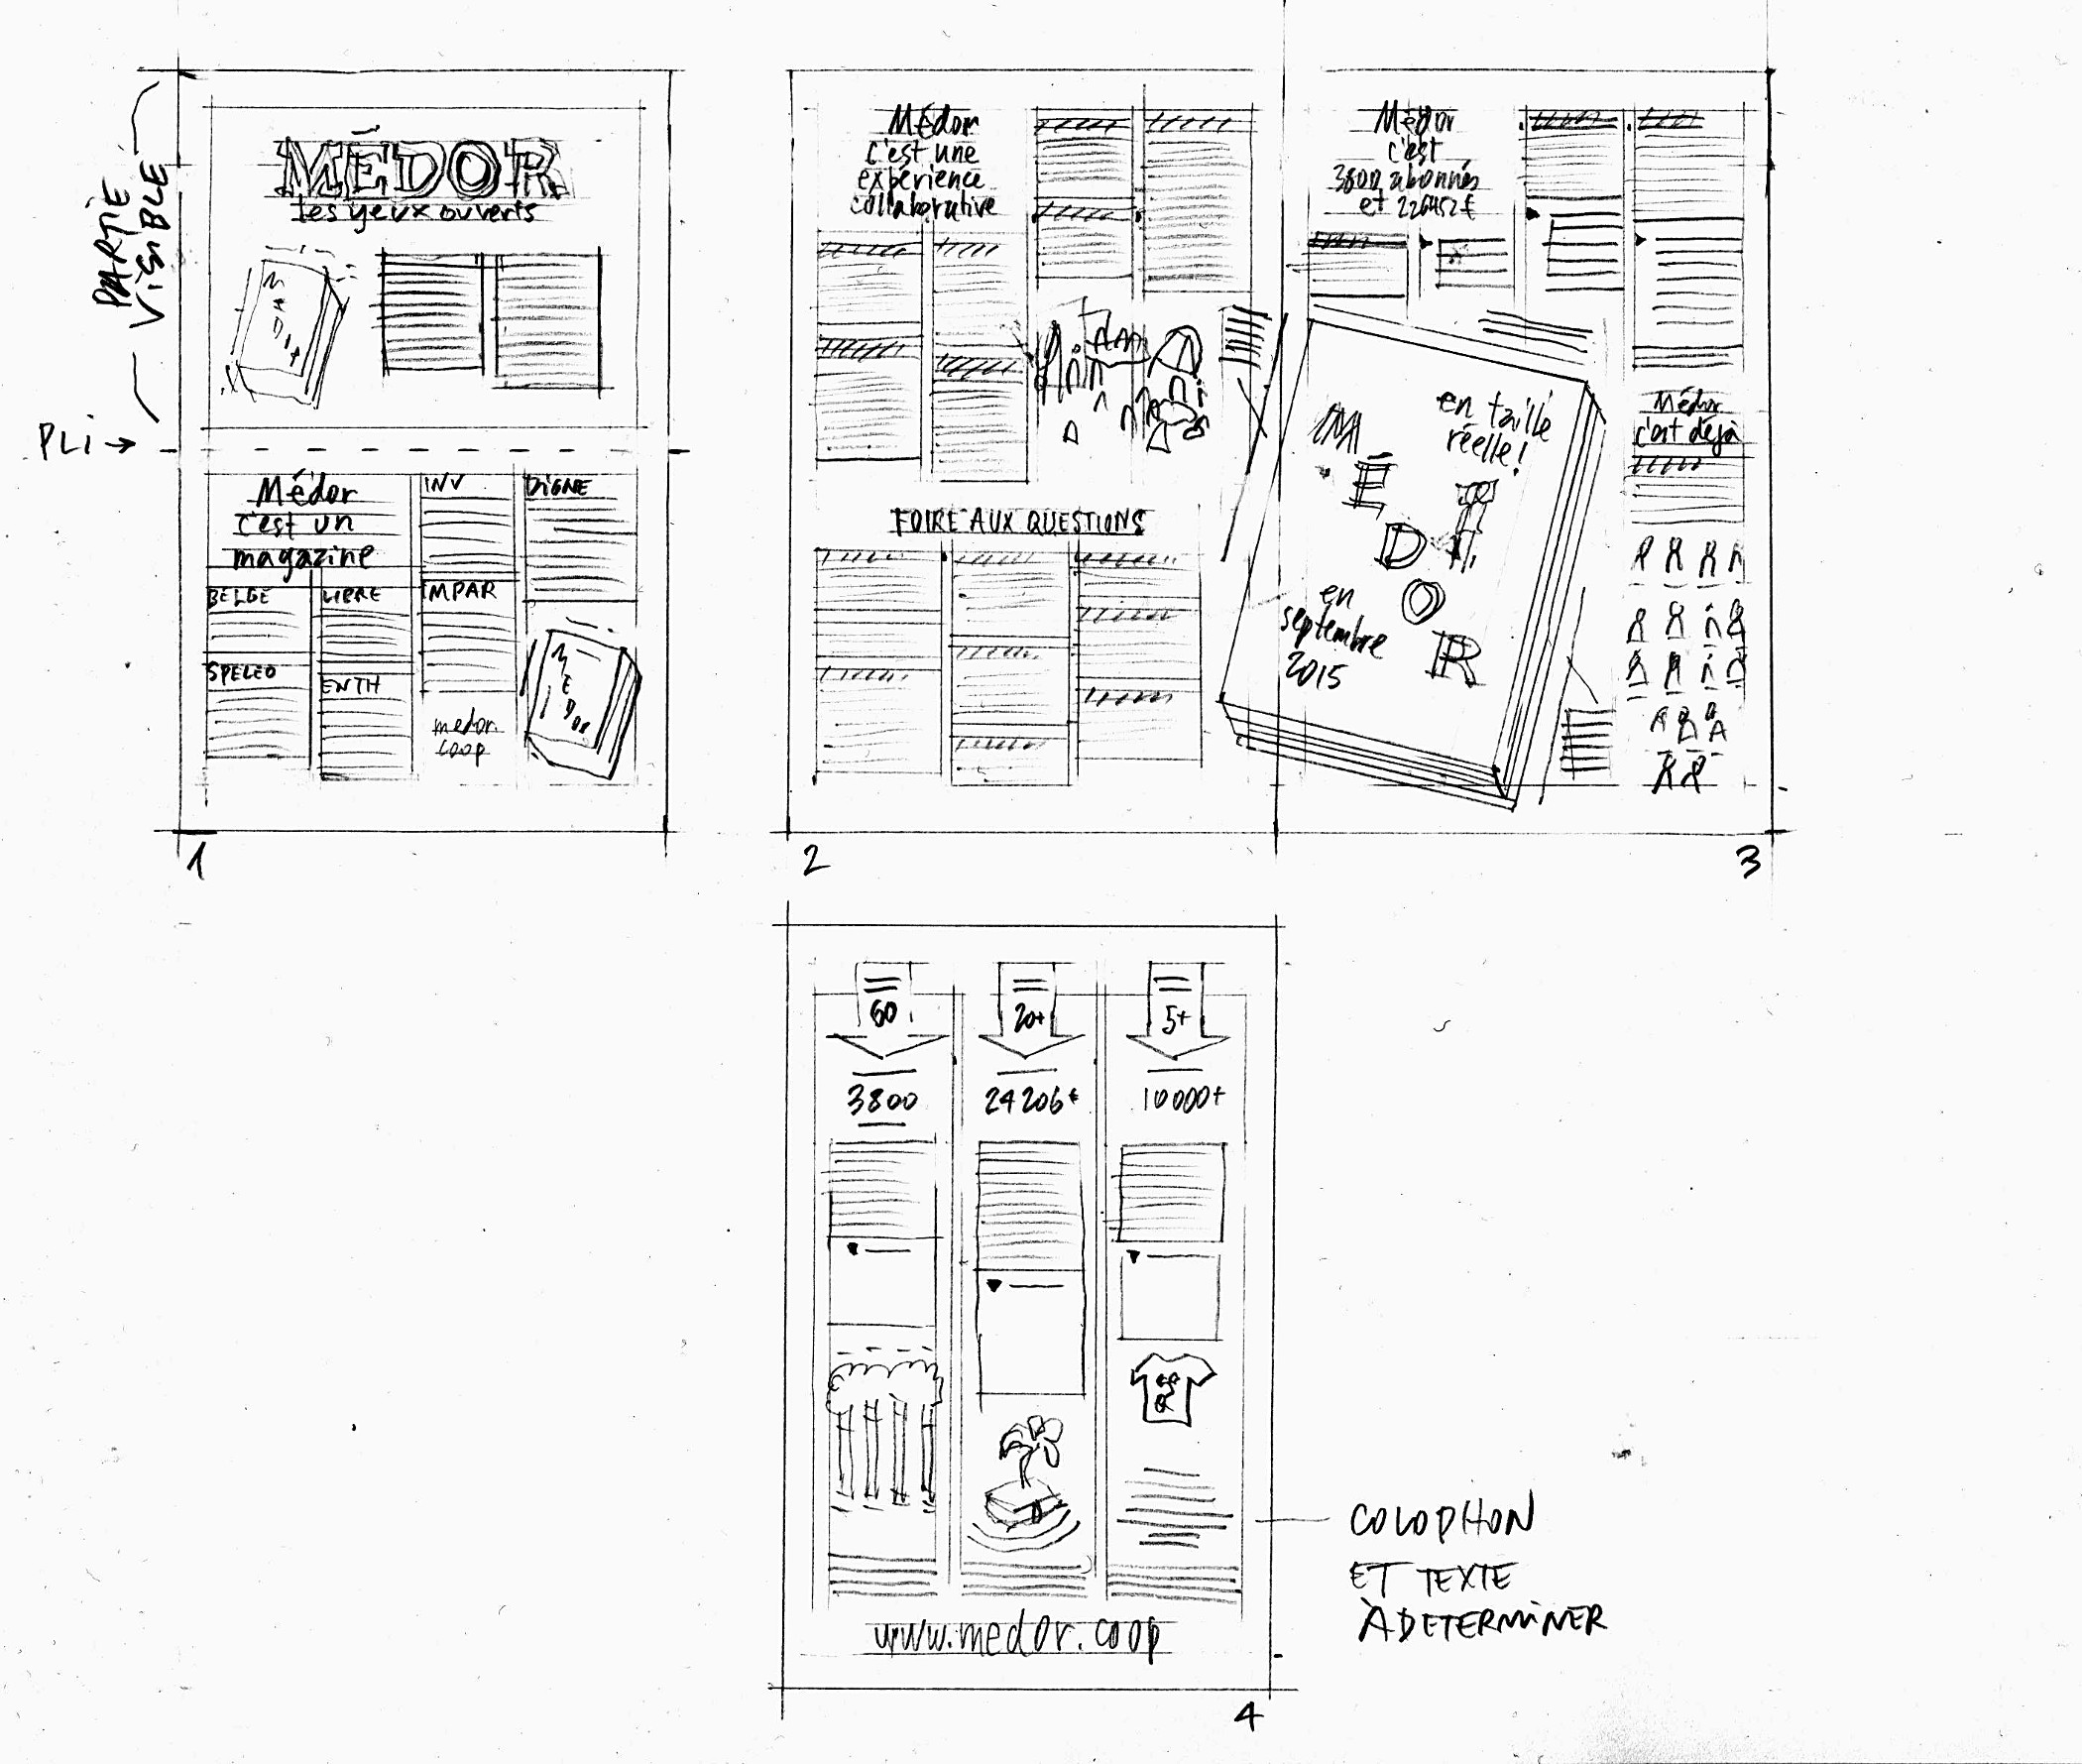 PARTIE
VISIBLE
PLI →
MÉDOR
les yeux ouverts
Médor
c'est un
magazine
BELGE
SPELEO
LIBRE
ENTH
INV
IMPAR
DIGNE
medor.
coop
MEDOR
1
Médor
c'est une
expérience
collaborative
FOIRE AUX QUESTIONS
2
Médor
c'est
3800 abonnés
et 226452€
en taille
réelle!
M
É
D
O
R
en
septembre
2015
Médor
c'est déjà
3
60
3800
20+
24206€
5+
10000+
www.medor.coop
4
COLOPHON
ET TEXTE
À DETERMINER